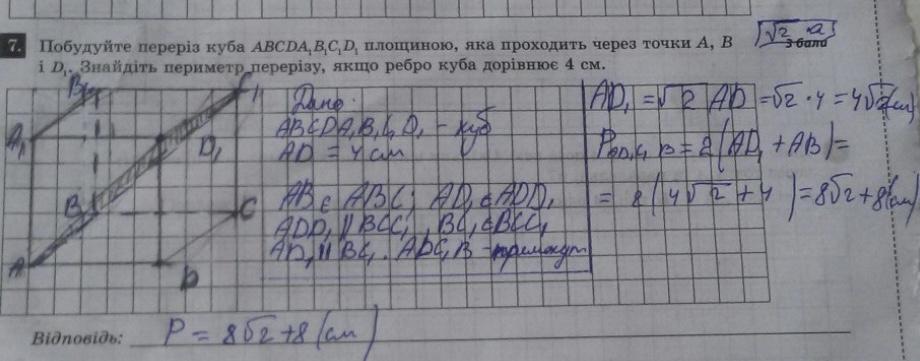 √2 a
3 бали
7. Побудуйте переріз куба ABCDA₁B₁C₁D₁ площиною, яка проходить через точки A, B
і D₁. Знайдіть периметр перерізу, якщо ребро куба дорівнює 4 см.
B₁
C₁
A₁
D₁
B
C
A
D
Дано:
ABCDA₁B₁C₁D₁ - куб
AD = 4 см
AB ⊂ ABC; AD₁ ⊂ ADD₁
ADD₁ || BCC₁, BC₁ ⊂ BCC₁
AD₁ || BC₁. ADC₁B -
AD₁ = √2 AD = √2 · 4 = 4√2 (см)
P = 2(AD₁ + AB) =
= 8(4√2 + 4) = 8√2 + 8 (см)
Відповідь: P = 8√2 + 8 (см)